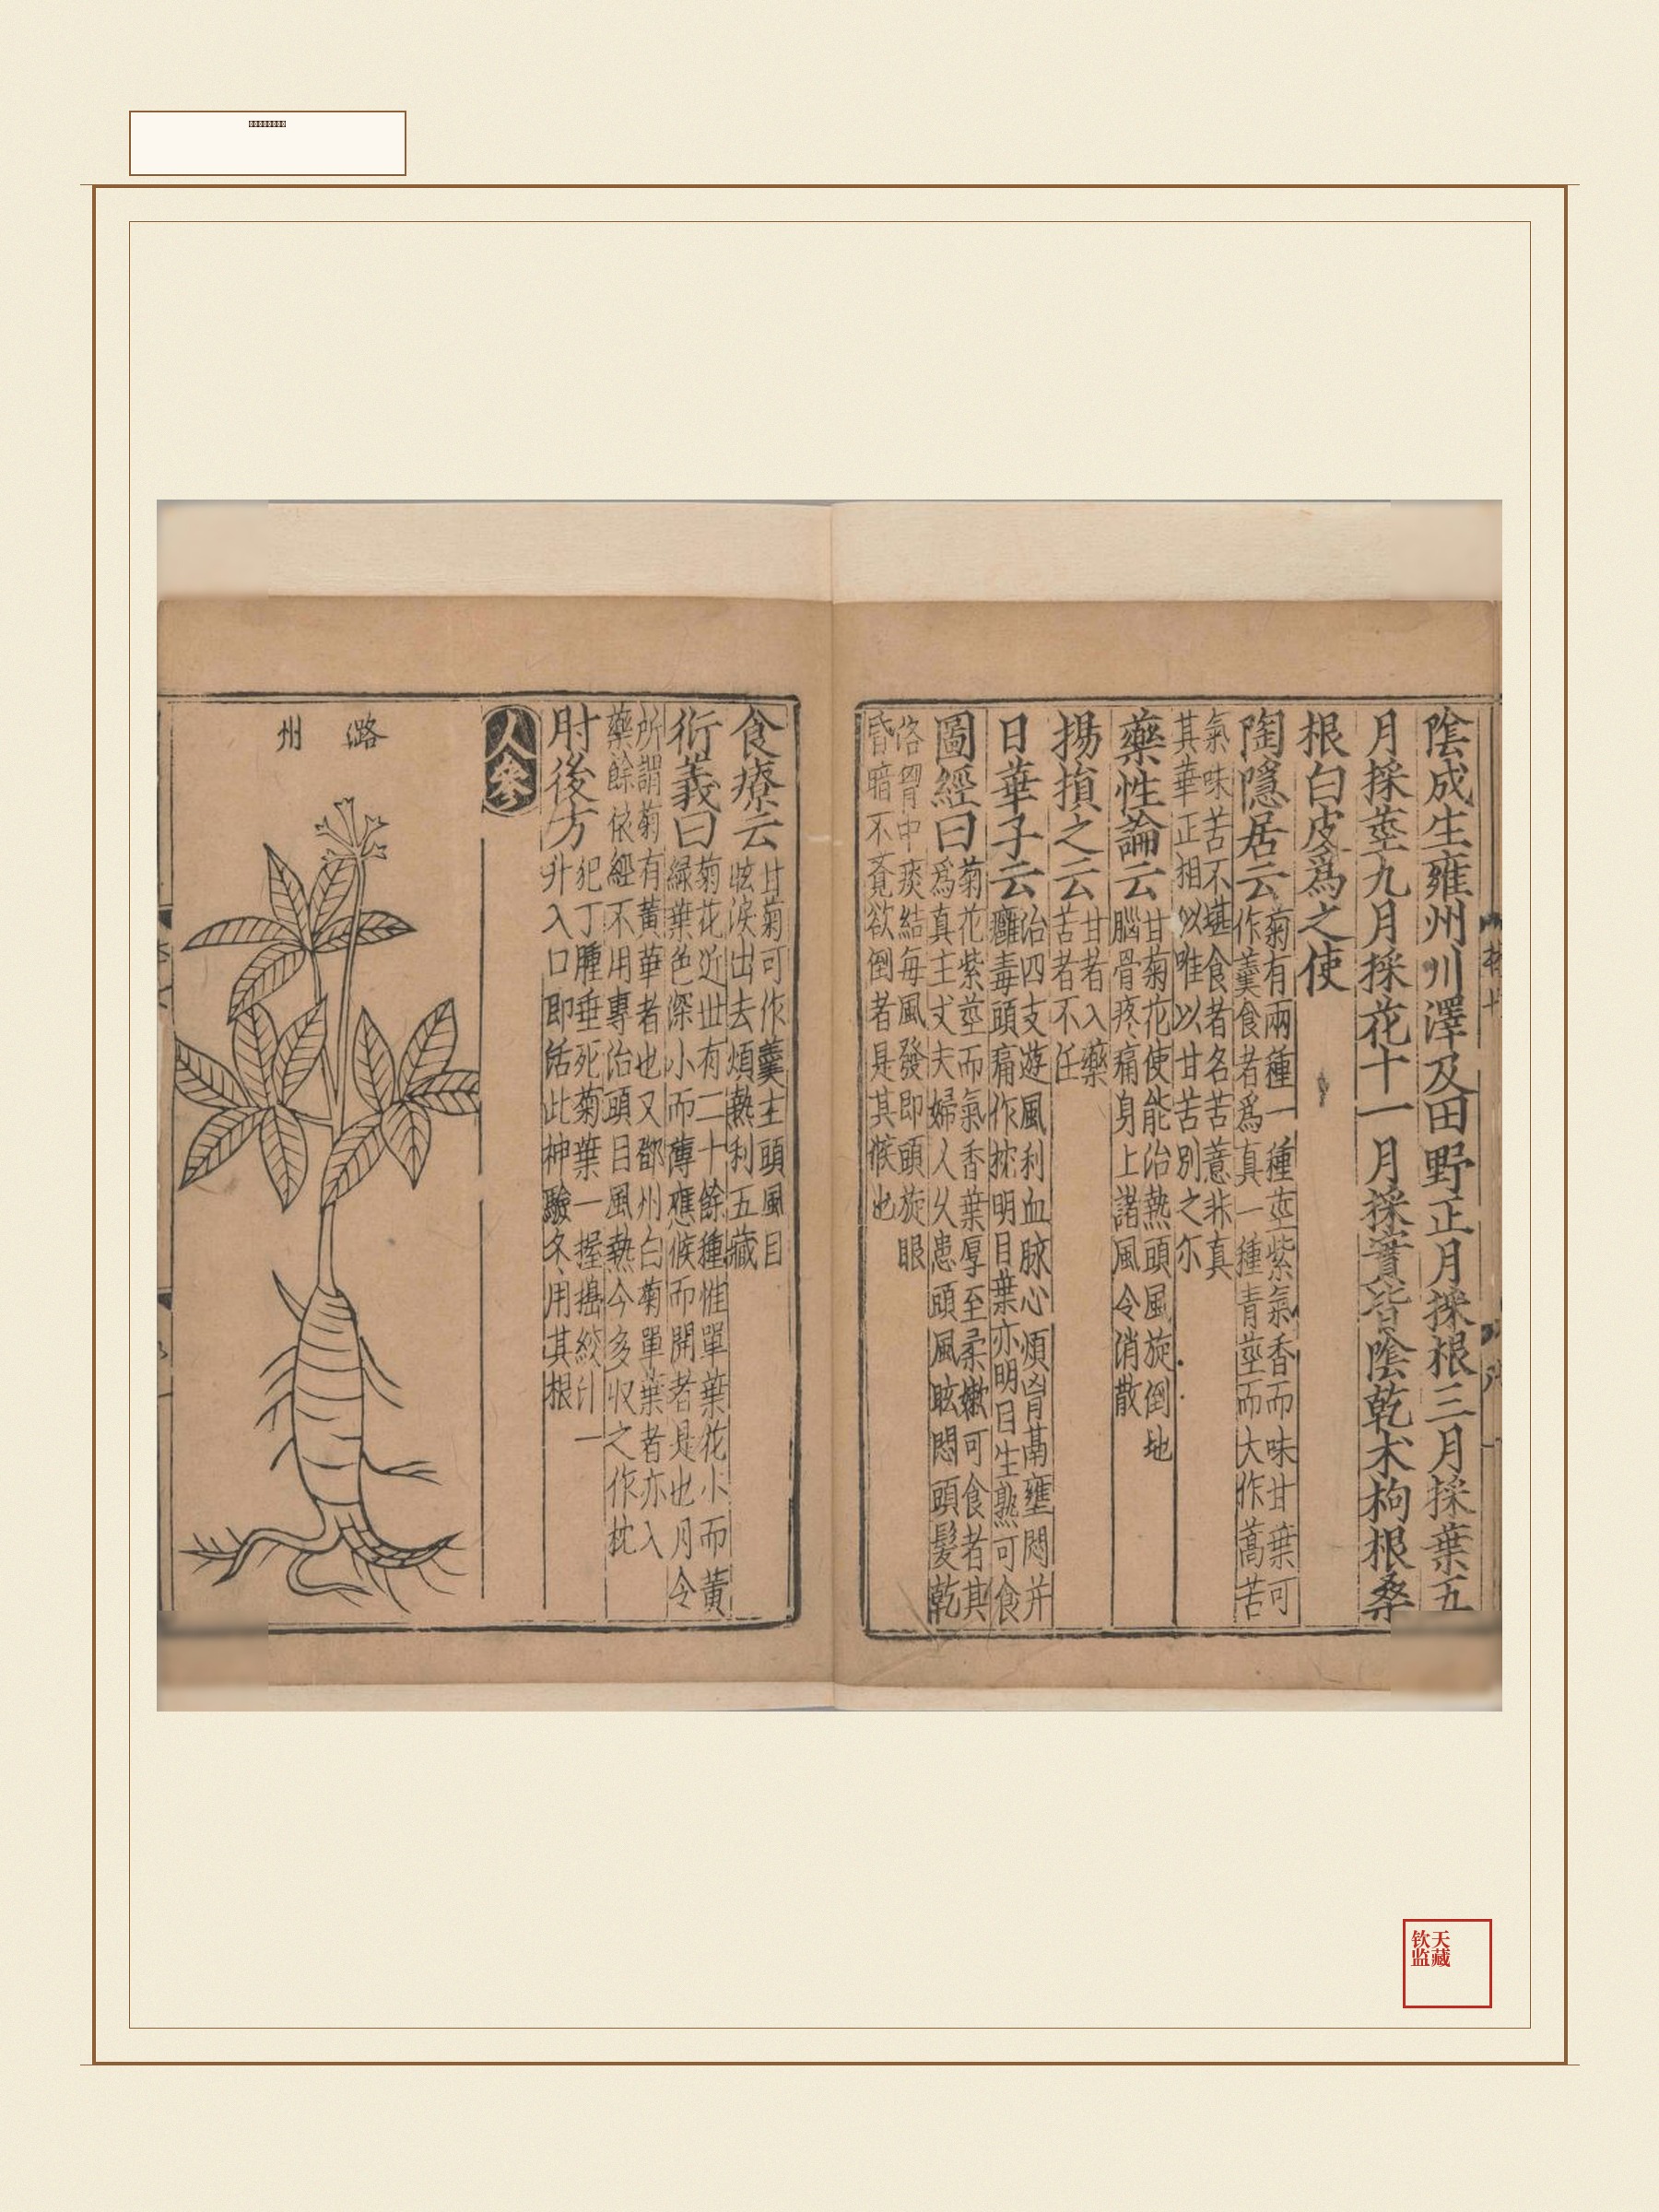 陰成生雍州川澤及田野正月採根三月採葉五
月採莖九月採花十一月採實皆陰乾术枸根桑
根白皮爲之使
陶隱居云菊有兩種一種莖紫氣香而味甘葉可
作羹食者爲真一種青莖而大作蒿苦
氣味苦不堪食者名苦薏非真
其華正相似唯以甘苦別之尓
藥性論云甘菊花使能治熱頭風旋倒地
腦骨疼痛身上諸風令消散
揚損之云甘者入藥
苦者不任
日華子云治四支遊風利血脉心煩胷膈壅悶并
癰毒頭痛作枕明目葉亦明目生熟可食
圖經曰菊花紫莖而氣香葉厚至柔嫩可食者其
爲真主丈夫婦人久患頭風眩悶頭髮乾
落胃中痰結每風發即頭旋眼
昏暗不覺欲倒者是其候也
食療云甘菊可作羹主頭風目
眩淚出去煩熱利五藏
衍義曰菊花近世有二十餘種惟單葉花小而黃
綠葉色深小而薄應候而開者是也月令
所謂菊有黃華者也又鄧州白菊單葉者亦入
藥餘依經不用專治頭目風熱今多収之作枕
肘後方犯丁腫垂死菊葉一握搗絞汁一
升入口即活此神驗冬用其根
人參
潞州
天藏
钦监